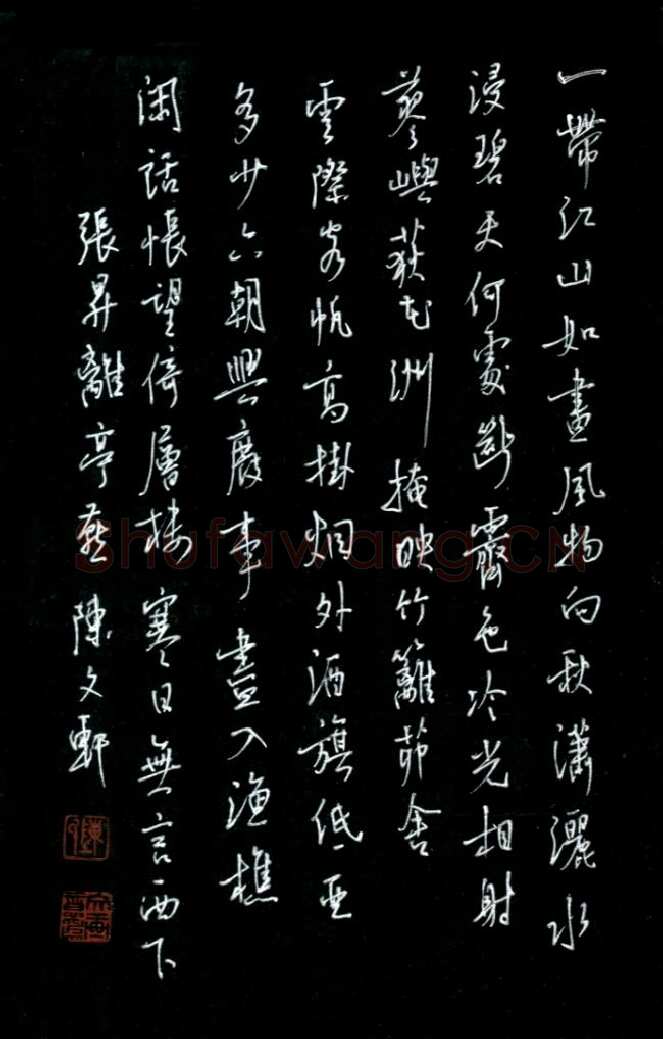 一帶江山如畫風物向秋瀟灑水
浸碧天何處斷霽色冷光相射
蓼嶼荻花洲掩映竹籬茆舍
雲際客帆高掛烟外酒旗低亞
多少六朝興廢事盡入漁樵
閑話悵望倚層樓寒日無言西下
張昇離亭燕 陳文軒
Shufawang.CN